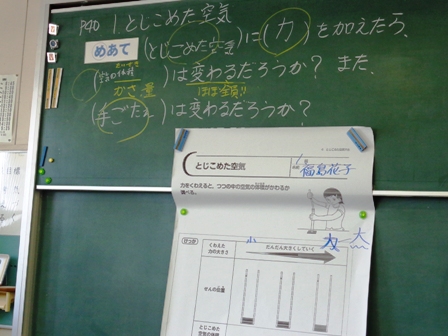 P90 1. とじこめた空気
めあて (とじこめた空き)に(力)を加えたら、
(空気の体積)は変わるだろうか? また、
かさ 量 ほぼ全員!!
(手ごたえ)は変わるだろうか?
とじこめた空気
福島花子
力をくわえると、つつの中の空気の体積がかわるか
調べる。
けっか
くわえた
力の大きさ
小 だんだん大きくしていく 大
せんの位置
とじこめた
空気の体積